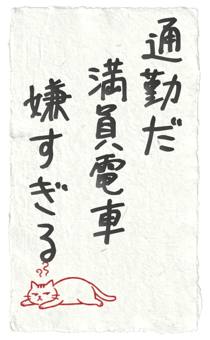 通勤だ
満員電車
嫌すぎる